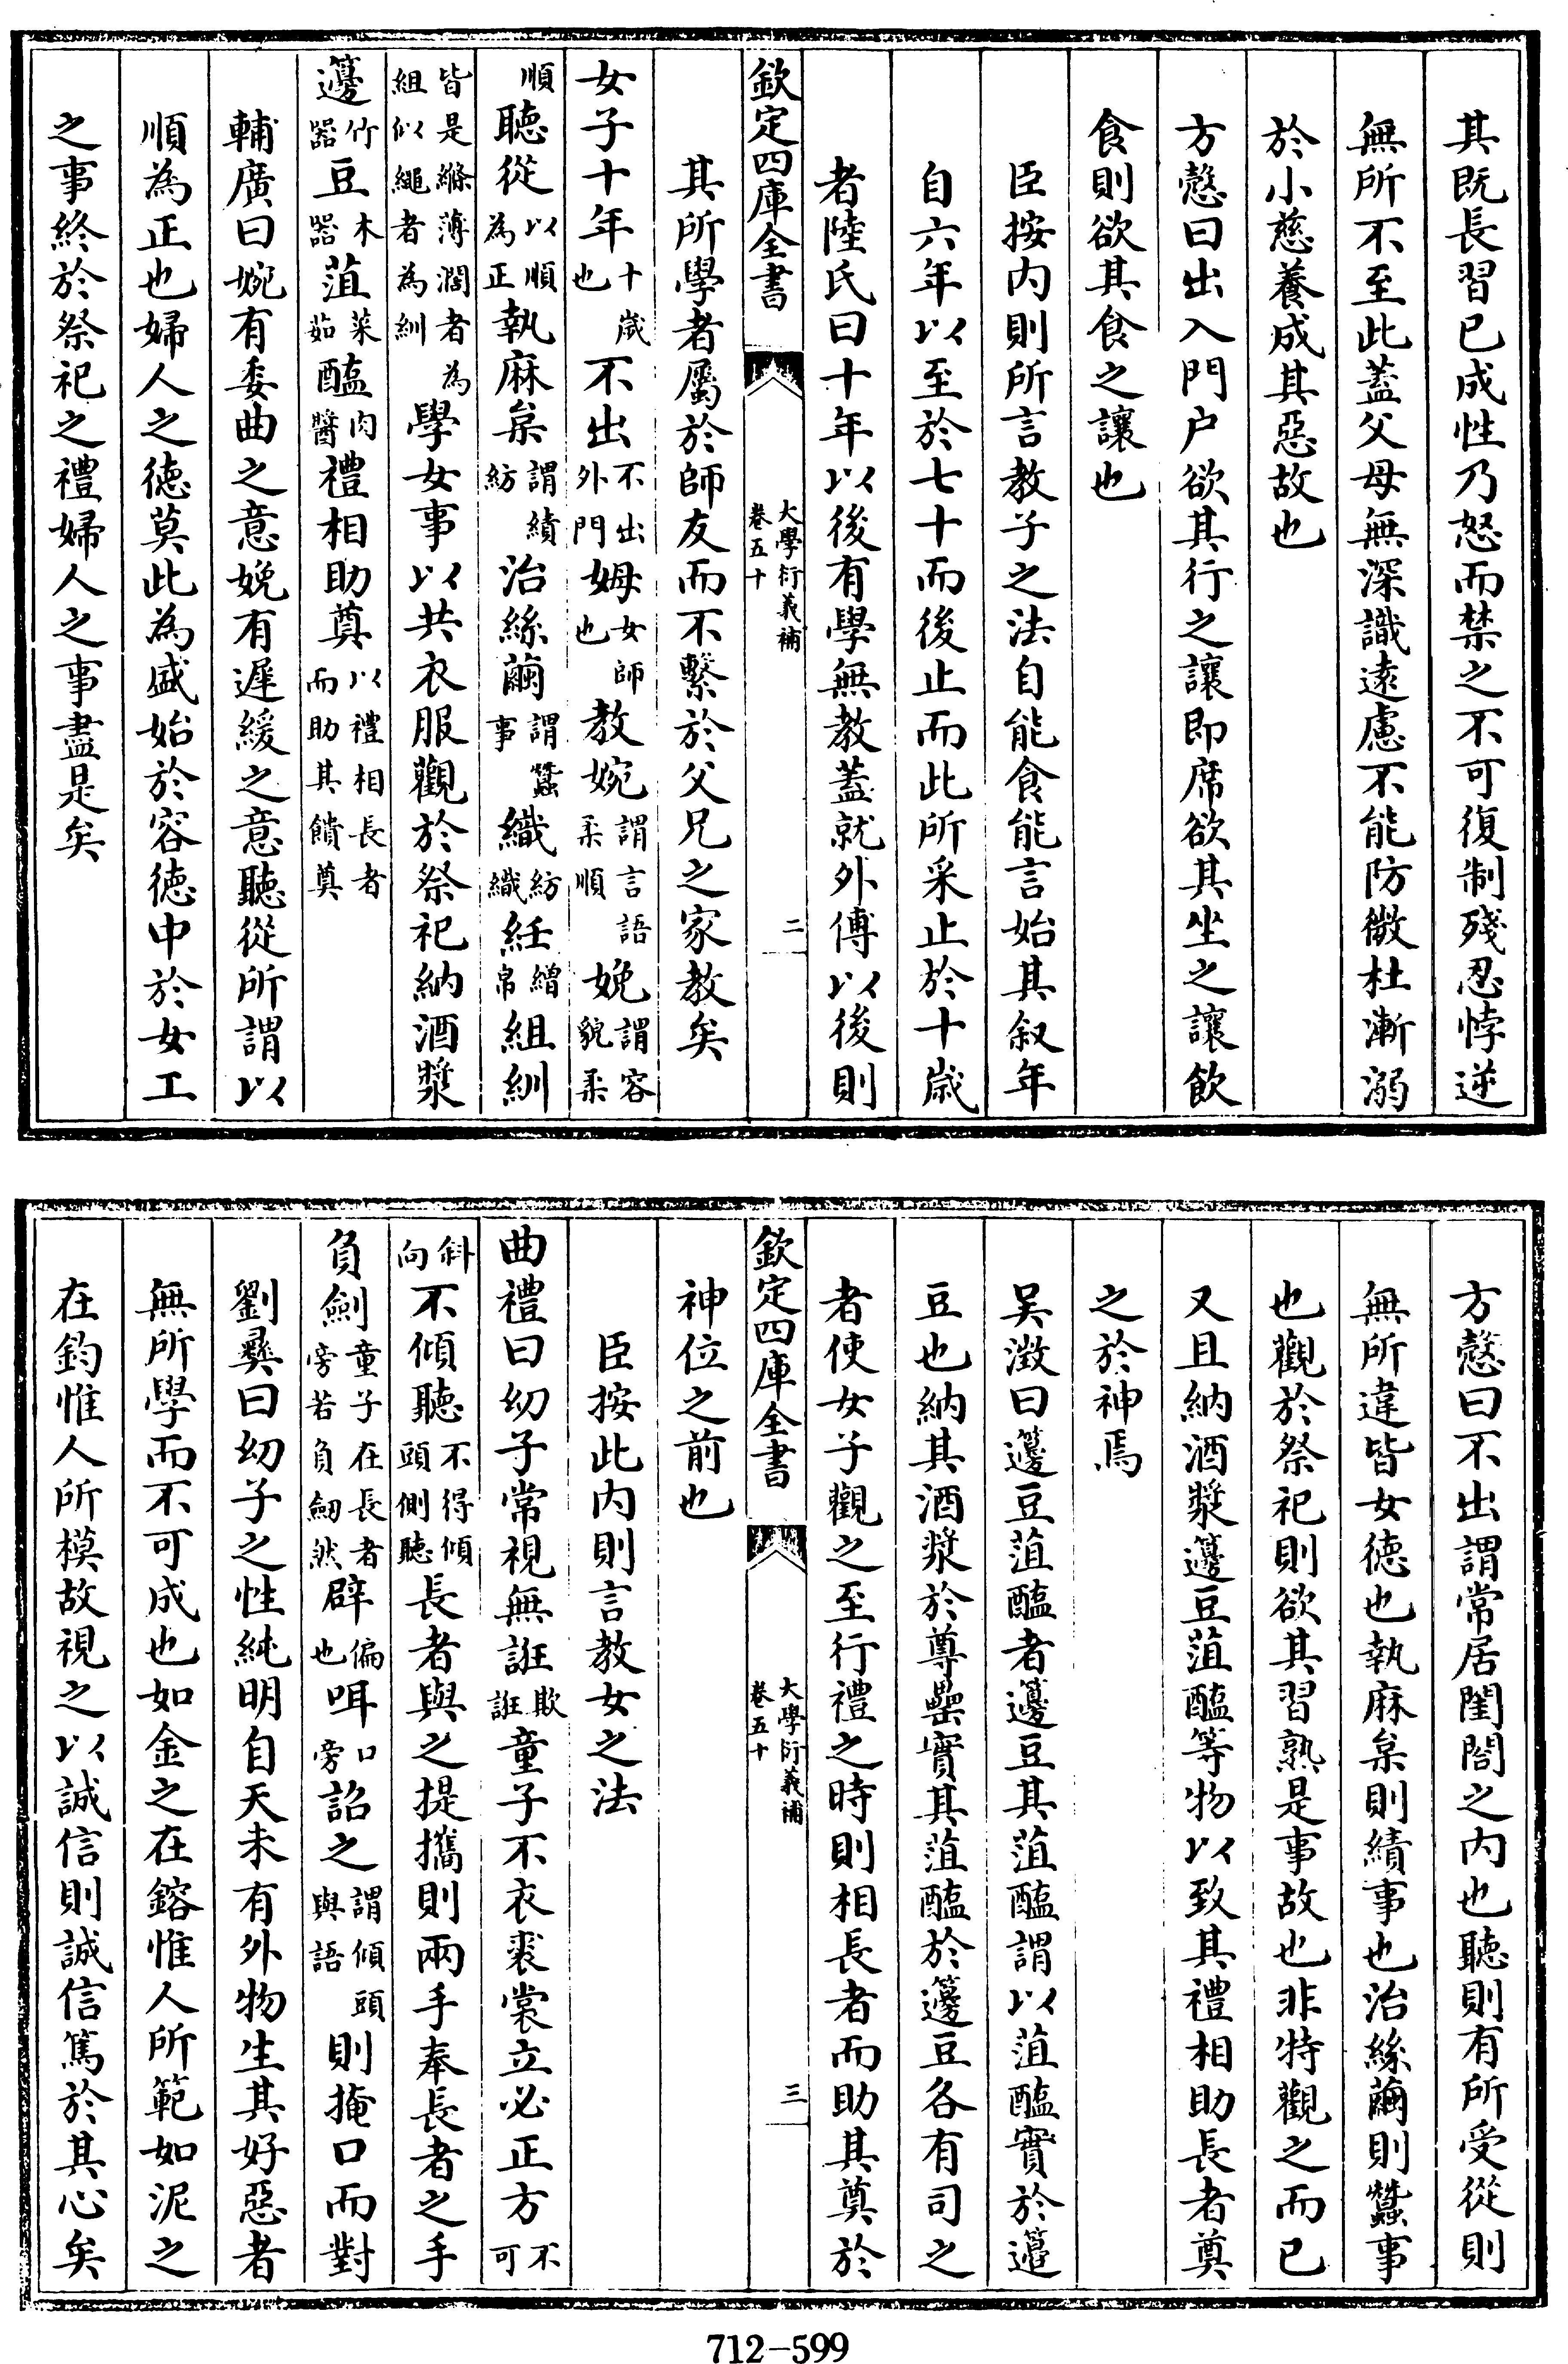 其既長習已成性乃怒而禁之不可復制殘忍悖逆
無所不至此蓋父母無深識遠慮不能防微杜漸溺
於小慈養成其惡故也
方慤曰出入門户欲其行之讓即席欲其坐之讓飲
食則欲其食之讓也
臣按内則所言教子之法自能食能言始其叙年
自六年以至於七十而後止而此所采止於十歲
者陸氏曰十年以後有學無教蓋就外傅以後則
欽定四庫全書
大學衍義補
卷五十
二
其所學者屬於師友而不繫於父兄之家教矣
女子十年十歲也不出不出外門姆女師也教婉謂言語柔順娩謂容貌柔
順聽從以順為正執麻枲謂績紡治絲繭謂蠶事織紡織紝繒帛組紃
皆是絛薄濶者為組似繩者為紃學女事以共衣服觀於祭祀納酒漿
籩竹器豆木器菹菜茹醢肉醬禮相助奠以禮相長者而助其饋奠
輔廣曰婉有委曲之意娩有遲緩之意聽從所謂以
順為正也婦人之德莫此為盛始於容德中於女工
之事終於祭祀之禮婦人之事盡是矣
方慤曰不出謂常居閨閤之内也聽則有所受從則
無所違皆女德也執麻枲則績事也治絲繭則蠶事
也觀於祭祀則欲其習熟是事故也非特觀之而已
又且納酒漿籩豆菹醢等物以致其禮相助長者奠
之於神焉
吴澂曰籩豆菹醢者籩豆其菹醢謂以菹醢實於籩
豆也納其酒漿於尊罍實其菹醢於籩豆各有司之
者使女子觀之至行禮之時則相長者而助其奠於
欽定四庫全書
大學衍義補
卷五十
三
神位之前也
臣按此内則言教女之法
曲禮曰幼子常視無誑欺誑童子不衣裘裳立必正方不可
斜向不傾聽不得傾頭側聽長者與之提攜則兩手奉長者之手
負劍童子在長者旁若負劒然辟偏也咡口旁詔之謂傾頭與語則掩口而對
劉彝曰幼子之性純明自天未有外物生其好惡者
無所學而不可成也如金之在鎔惟人所範如泥之
在鈞惟人所模故視之以誠信則誠信篤於其心矣
712-599